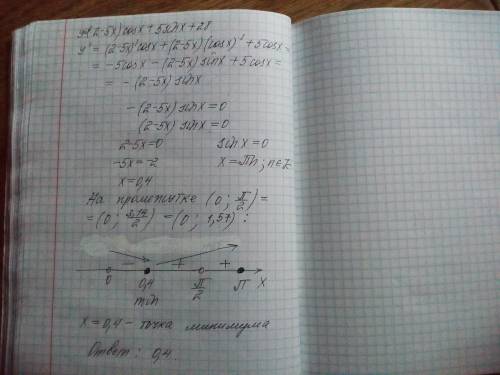 y=(2-5x)cosx+5sinx+28
y'=(2-5x)'cosx+(2-5x)(cosx)'+5cosx=
=-5cosx-(2-5x)sinx+5cosx=
=-(2-5x)sinx
-(2-5x)sinx=0
(2-5x)sinx=0
2-5x=0 sinx=0
-5x=-2 x=πn; n∈Z
x=0,4
На промежутке (0; π/2)=
=(0; 3,14/2)=(0; 1,57):
- + +
0 0,4 π/2 π x
min
x=0,4- точка минимума
Ответ: 0,4.